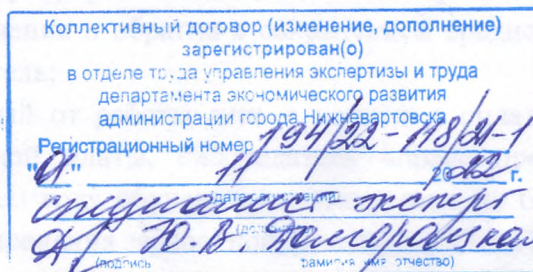 Коллективный договор (изменение, дополнение)
зарегистрирован(о)
в отделе труда управления экспертизы и труда
департамента экономического развития
администрации города Нижневартовска
Регистрационный номер 194/22-118/21-1
11 2022 г.
(дата регистрации)
специалист эксперт
(должность)
Ю.В.
(подпись фамилия имя отчество)